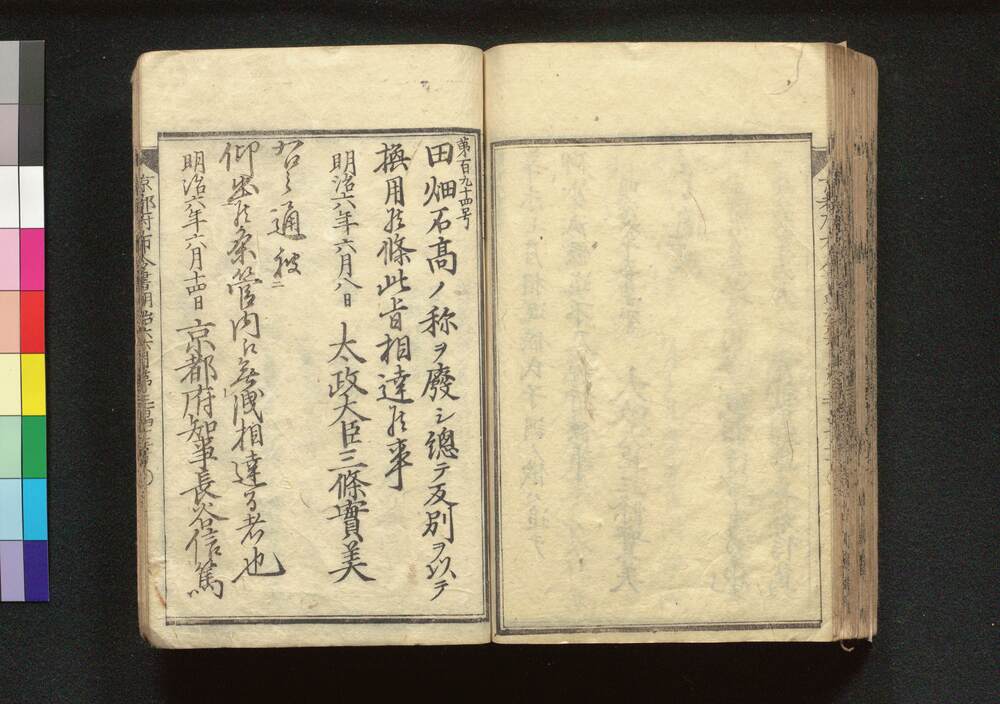 第百九十四号
田畑石高ノ称ヲ廃シ總テ反別ヲ以テ
撫用候條此旨相達候事
明治六年六月八日 太政大臣三條實美
右之通被ニ
仰出候条管内江無洩相達る者也
明治六年六月十四日 京都府知事長谷信篤
京都府布令書明治六年六月第